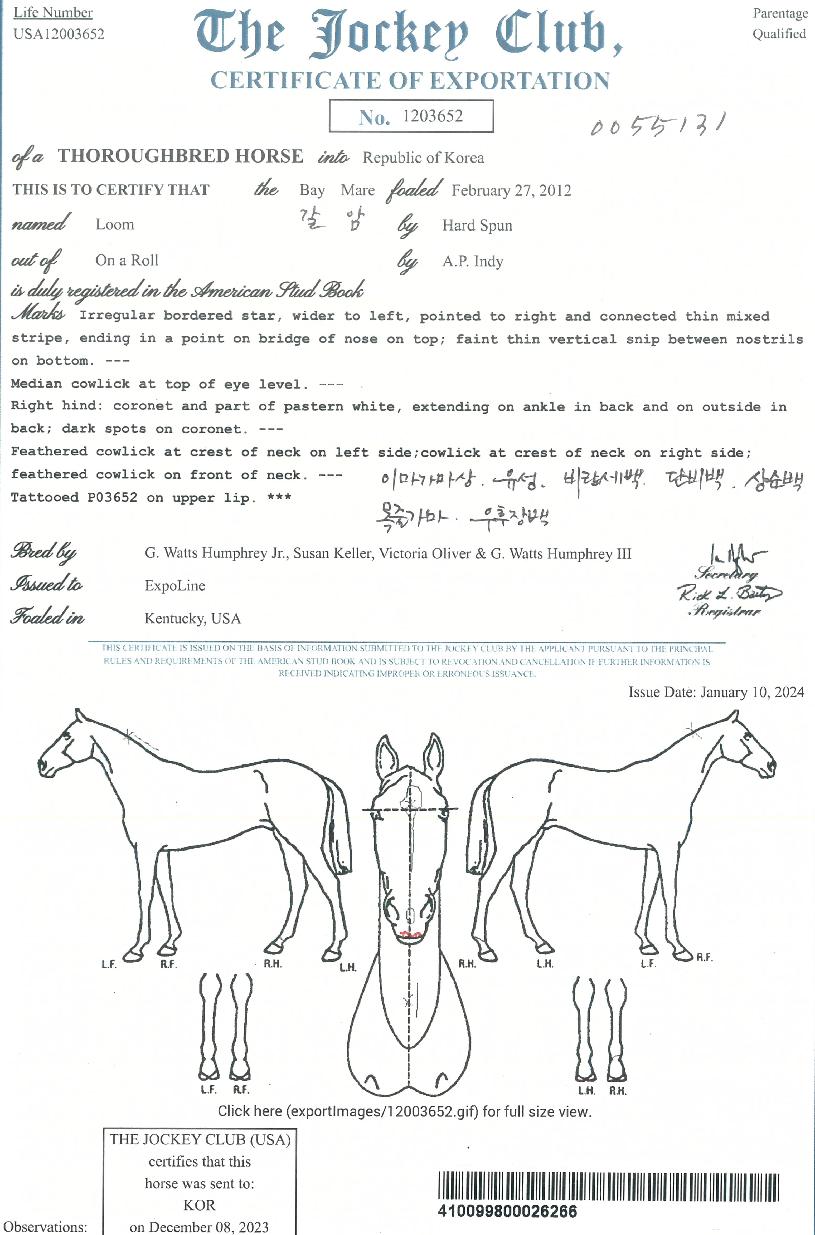 Life Number
USA12003652
The Jockey Club,
Parentage
Qualified
CERTIFICATE OF EXPORTATION
No. 1203652
0055131
of a THOROUGHBRED HORSE into Republic of Korea
THIS IS TO CERTIFY THAT the Bay Mare foaled February 27, 2012
갈 암
named Loom by Hard Spun
out of On a Roll by A.P. Indy
is duly registered in the American Stud Book
Marks Irregular bordered star, wider to left, pointed to right and connected thin mixed
stripe, ending in a point on bridge of nose on top; faint thin vertical snip between nostrils
on bottom. ---
Median cowlick at top of eye level. ---
Right hind: coronet and part of pastern white, extending on ankle in back and on outside in
back; dark spots on coronet. ---
Feathered cowlick at crest of neck on left side;cowlick at crest of neck on right side;
feathered cowlick on front of neck. ---
이마가마상. 유성. 비량세백. 단비백. 상순백
Tattooed P03652 on upper lip. ***
목줄가마. 우후장백
Bred by G. Watts Humphrey Jr., Susan Keller, Victoria Oliver & G. Watts Humphrey III
Secretary
Issued to ExpoLine
Registrar
Foaled in Kentucky, USA
THIS CERTIFICATE IS ISSUED ON THE BASIS OF INFORMATION SUBMITTED TO THE JOCKEY CLUB BY THE APPLICANT PURSUANT TO THE PRINCIPAL
RULES AND REQUIREMENTS OF THE AMERICAN STUD BOOK AND IS SUBJECT TO REVOCATION AND CANCELLATION IF FURTHER INFORMATION IS
RECEIVED INDICATING IMPROPER OR ERRONEOUS ISSUANCE.
Issue Date: January 10, 2024
L.F. R.F. R.H. L.H. R.H. L.H. L.F. R.F.
L.F. R.F. L.H. R.H.
Click here (exportImages/12003652.gif) for full size view.
THE JOCKEY CLUB (USA)
certifies that this
horse was sent to:
KOR
on December 08, 2023
Observations:
410099800026266